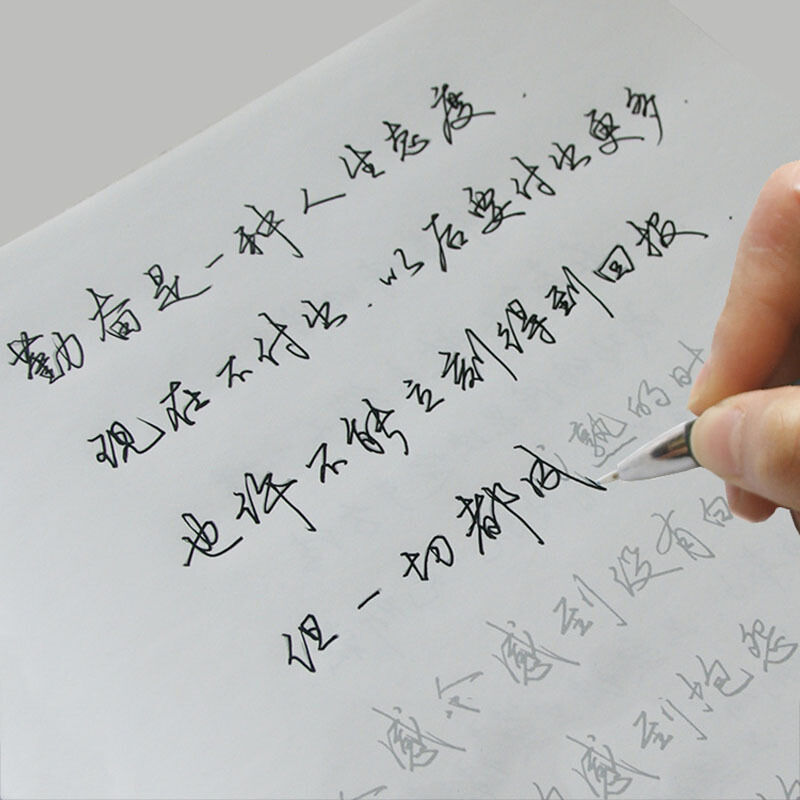 勤奋是一种人生态度.
现在不付出.以后要付出更多.
也许不能立刻得到回报.
但一切都成熟的时
感到没有
感到抱怨